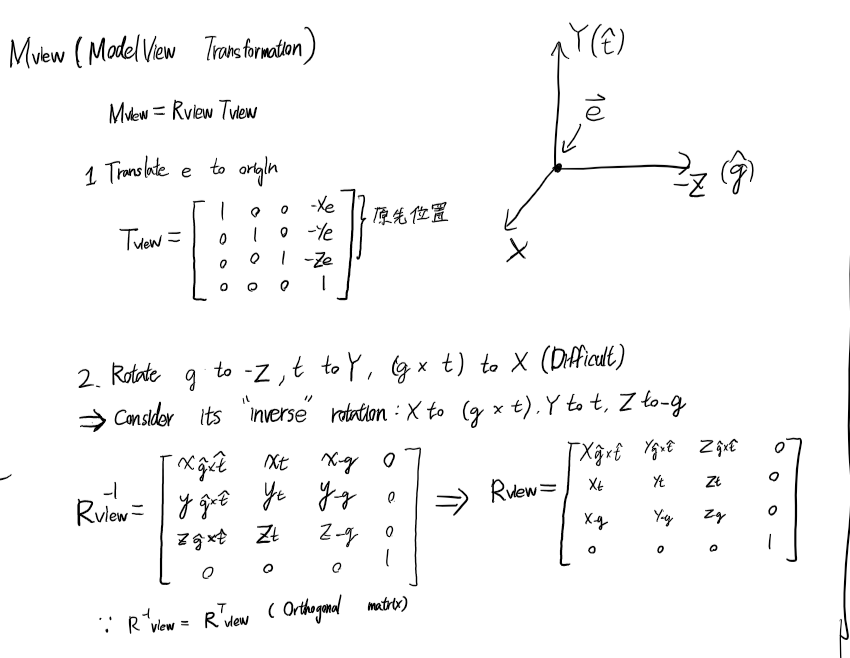 Mview (ModelView Transformation)
Y(t̂)
Mview = Rview Tview
e⃗
1 Translate e to origin
-Z (ĝ)
X
Tview = [ 1 0 0 -Xe
0 1 0 -Ye
0 0 1 -Ze
0 0 0 1 ] } 原先位置
2. Rotate g to -Z, t to Y, (g x t) to X (Difficult)
⇒ Consider its "inverse" rotation: X to (g x t). Y to t, Z to -g
R⁻¹view = [ xĝxt̂ xt x-g 0
yĝxt̂ yt y-g 0
zĝxt̂ zt z-g 0
0 0 0 1 ]
⇒ Rview = [ Xĝxt̂ Yĝxt̂ Zĝxt̂ 0
Xt Yt Zt 0
X-g Y-g Zg 0
0 0 0 1 ]
∵ R⁻¹view = Rᵀview (Orthogonal matrix)